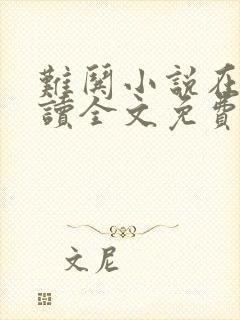 難鬨小說在
讀全文免費
文尼